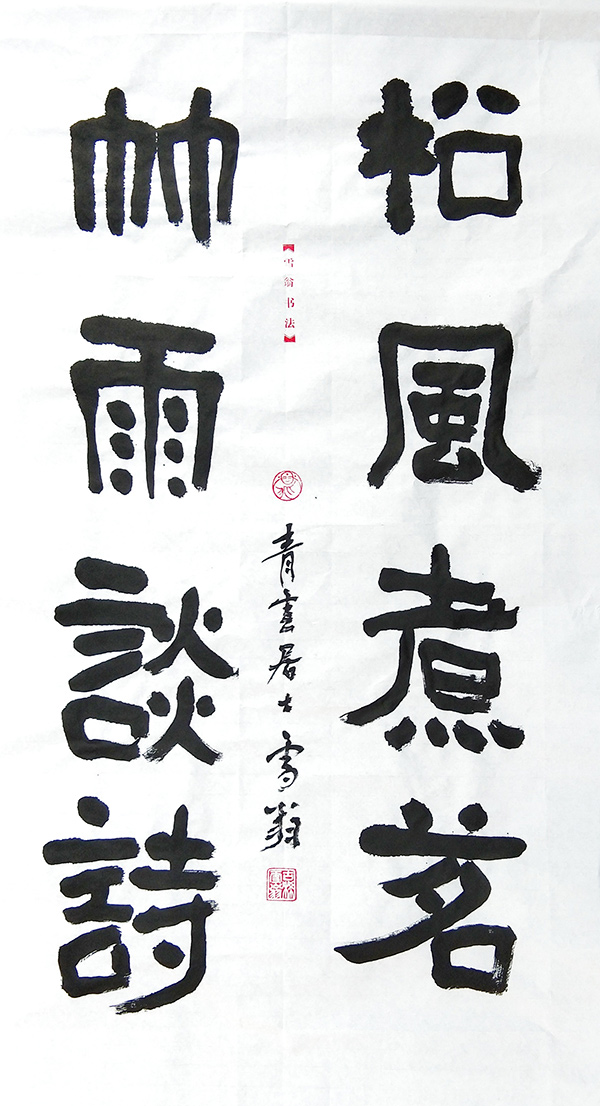 松風煮茗
竹雨談詩
【雪翁书法】
青雲居士雪翁